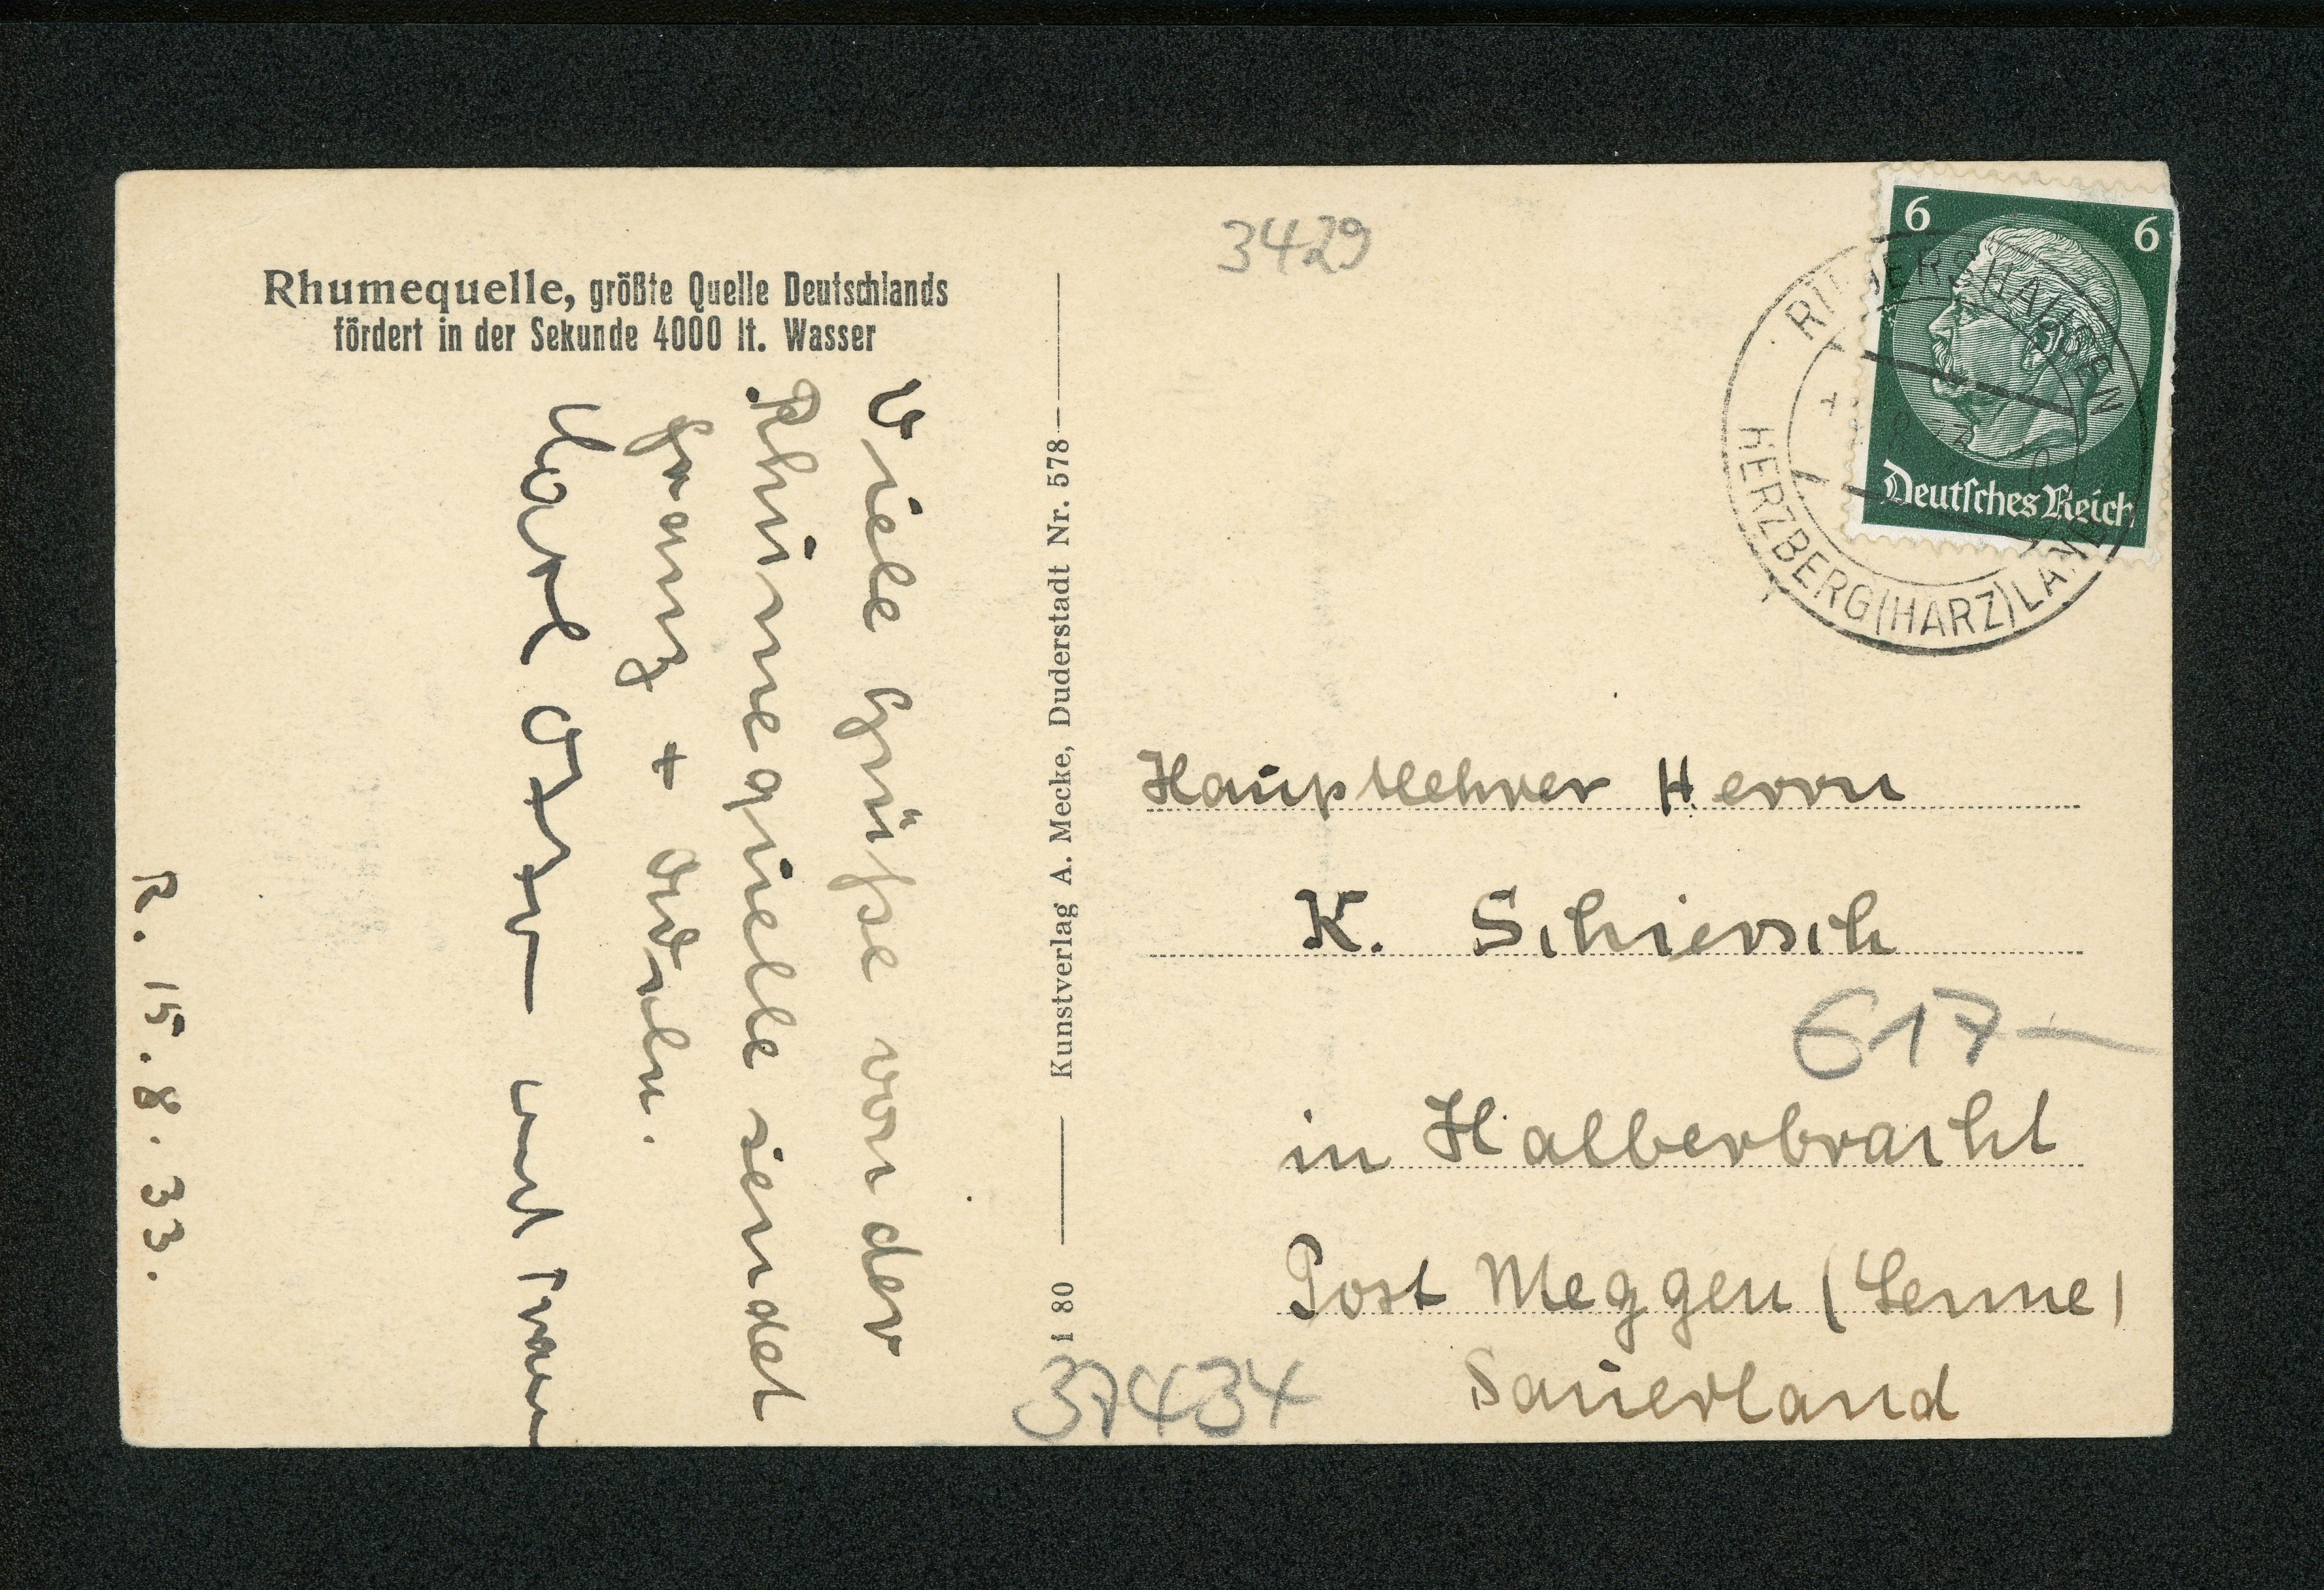 Rhumequelle, größte Quelle Deutschlands
fördert in der Sekunde 4000 lt. Wasser
Viele Grüße von der
Rhumequelle sendet
Franz +
Karl und Frau
R. 15. 8. 33.
Kunstverlag A. Mecke, Duderstadt Nr. 578
i 80
3429
6 6
Deutsches Reich
HERZBERG (HARZ) LAND
Hauptlehrer Herrn
K. Schiersch
617-
in Halberbracht
Post Meggen (Lenne)
Sauerland
37434